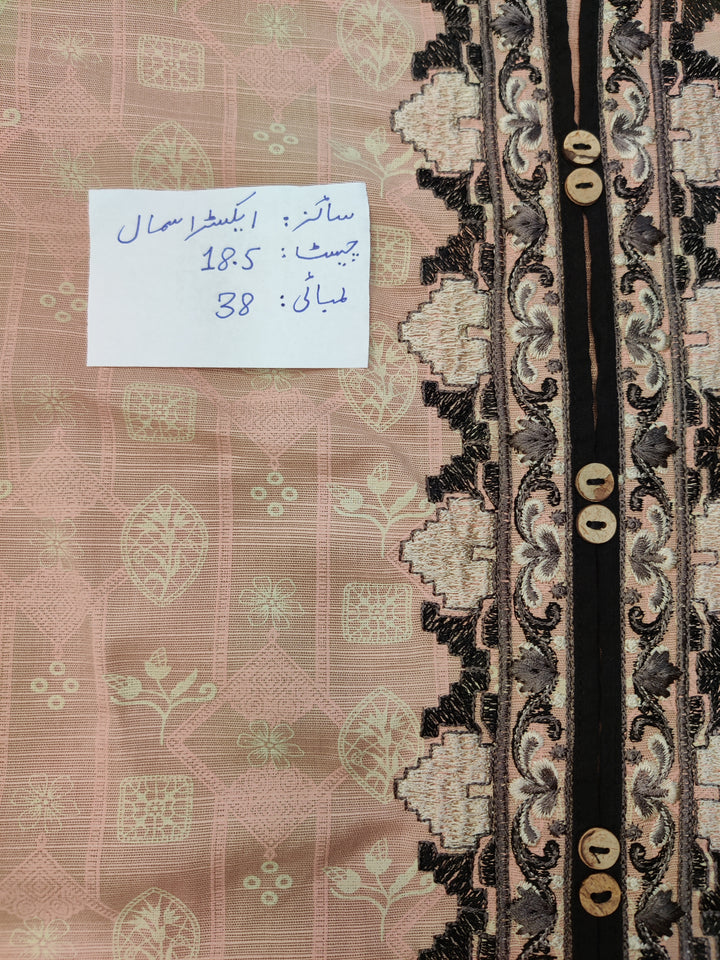 سائز: ایکسٹرا سمال
چیسٹ: 18.5
لمبائی: 38